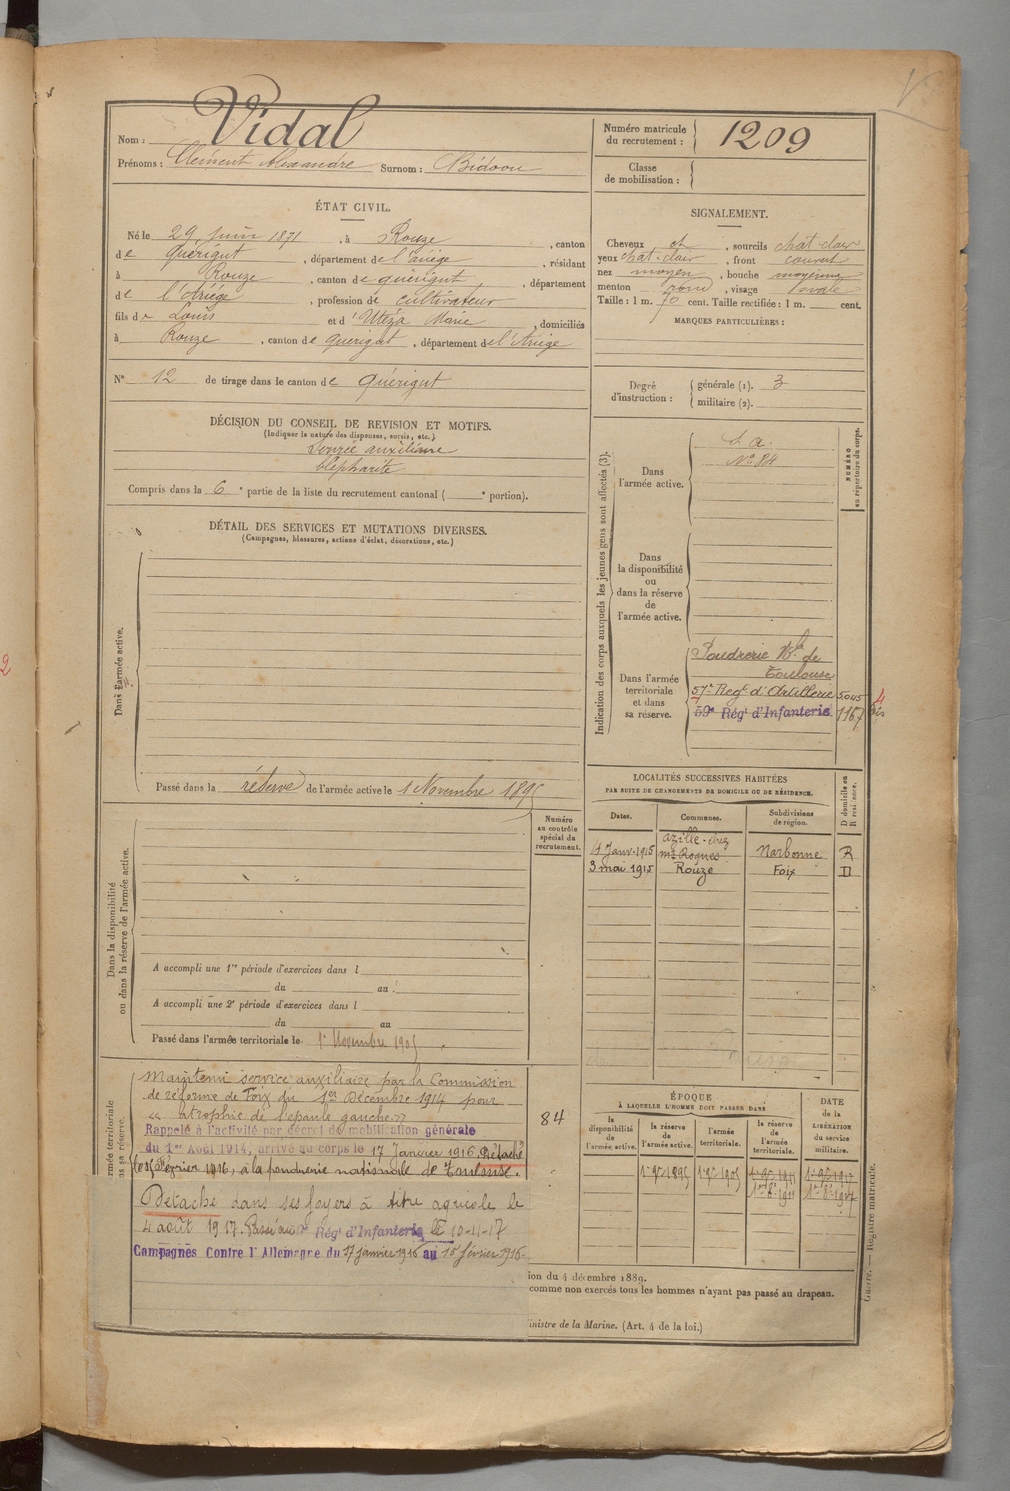 Nom : Vidal
Prénoms : Clément Alexandre Surnom : Bidoou
Numéro matricule
du recrutement : 1209
Classe
de mobilisation :
ÉTAT CIVIL.
Né le 29 juin 1871, à Rouze, canton
de Quérigut, département de l'ariège, résidant
à Rouze, canton de quérigut, département
de l'Ariège, profession de cultivateur
fils de Louis et d'Utéza Marie, domiciliés
à Rouze, canton de querigut, département de l'Ariège
N° 12 de tirage dans le canton de Quérigut
SIGNALEMENT.
Cheveux ch, sourcils chat-clair
yeux chat-clair, front couvert
nez moyen, bouche moyenne
menton rond, visage ovale
Taille : 1 m. 70 cent. Taille rectifiée : 1 m. cent.
MARQUES PARTICULIÈRES :
Degré
d'instruction :
générale (1). 3
militaire (2).
DÉCISION DU CONSEIL DE REVISION ET MOTIFS.
(Indiquer la nature des dispenses, sursis, etc.)
Service auxiliaire
blépharite
Compris dans la 6e partie de la liste du recrutement cantonal ( e portion).
DÉTAIL DES SERVICES ET MUTATIONS DIVERSES.
(Campagnes, blessures, actions d'éclat, décorations, etc.)
Dans l'armée active.
Passé dans la réserve de l'armée active le 1 Novembre 1895
Indication des corps auxquels les jeunes gens sont affectés (3).
NUMÉRO
au répertoire du corps.
Dans
l'armée active.
S. a.
N° 84
Dans
la disponibilité
ou
dans la réserve
de
l'armée active.
Dans l'armée
territoriale
et dans
sa réserve.
Poudrerie Nle de
Toulouse
57e Regt d'Artillerie 5045
59e Régt d'Infanterie 1167 bis
LOCALITÉS SUCCESSIVES HABITÉES
PAR SUITE DE CHANGEMENTS DE DOMICILE OU DE RÉSIDENCE.
Dates. Communes. Subdivisions
de région. D domicile ou
R résidence.
4 Janv. 1915 azille. chez
Mr Roques Narbonne R
3 mai 1915 Rouze Foix D
Dans la disponibilité
ou dans la réserve de l'armée active.
Numéro
au contrôle
spécial du
recrutement.
A accompli une 1re période d'exercices dans l
du au
A accompli une 2e période d'exercices dans l
du au
Passé dans l'armée territoriale le 1er Novembre 1905
84
Maintenu service auxiliaire par la Commission
de réforme de Foix du 1er Décembre 1914 pour
« atrophie de l'épaule gauche »
Rappelé à l'activité par décret de mobilisation générale
du 1er Août 1914, arrivé au corps le 17 Janvier 1916. Détaché
le 15 Février 1916, à la poudrerie nationale de Toulouse.
Détaché dans ses foyers à titre agricole le
4 août 1917. Passé au Régt d'Infanterie le 10-11-17
Campagnes Contre l'Allemagne du 17 janvier 1916 au 15 février 1916.
ÉPOQUE
À LAQUELLE L'HOMME DOIT PASSER DANS
la
disponibilité
de
l'armée active.
la réserve
de
l'armée active.
l'armée
territoriale.
la réserve
de
l'armée
territoriale.
DATE
de la
LIBÉRATION
du service
militaire.
1er 9bre 1895 1er 9bre 1905
ion du 4 décembre 1889.
comme non exercés tous les hommes n'ayant pas passé au drapeau.
inistre de la Marine. (Art. 4 de la loi.)
Guerre. — Registre matricule.